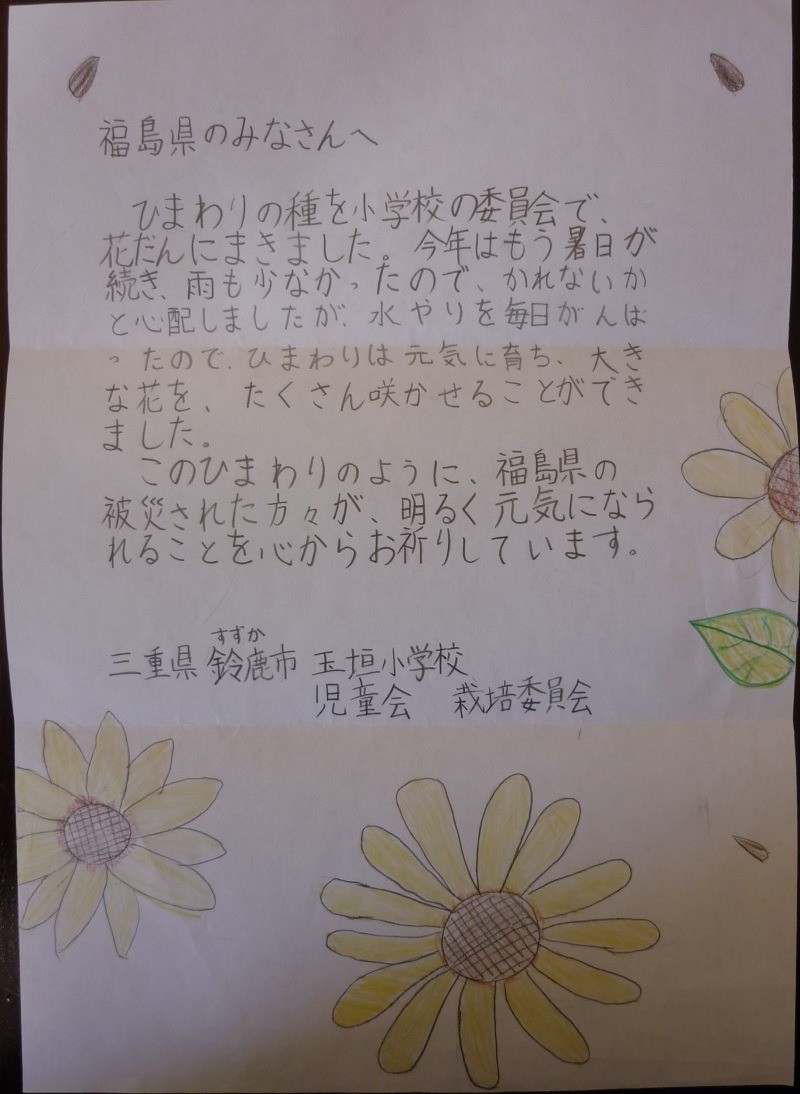 福島県のみなさんへ
ひまわりの種を小学校の委員会で、
花だんにまきました。今年はもう暑日が
続き、雨も少なかったので、かれないか
と心配しましたが、水やりを毎日がんば
ったので、ひまわりは元気に育ち、大き
な花を、たくさん咲かせることができ
ました。
このひまわりのように、福島県の
被災された方々が、明るく元気になら
れることを心からお祈りしています。
すずか
三重県 鈴鹿市 玉垣小学校
児童会 栽培委員会